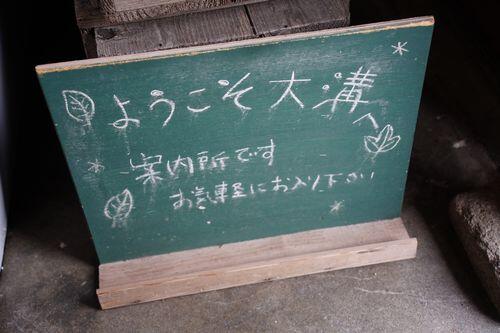 ようこそ大溝へ
案内所です
お気軽にお入り下さい